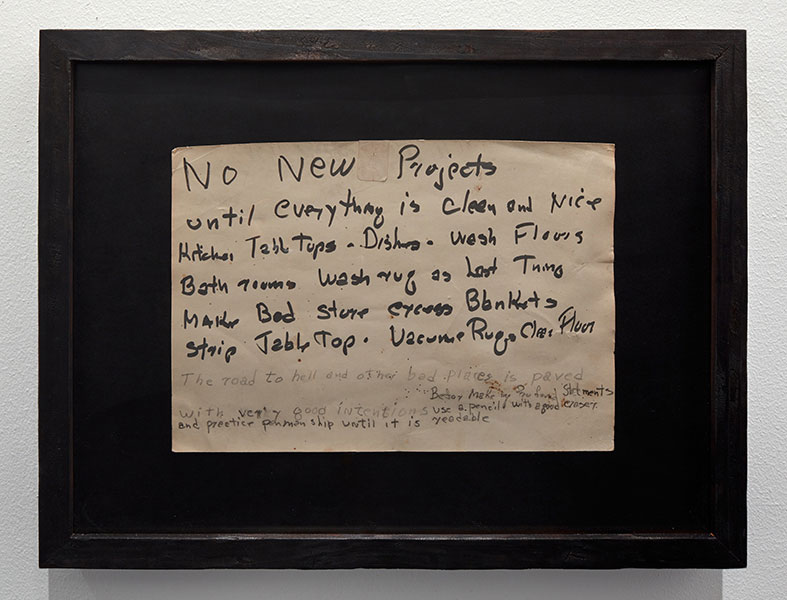 No New Projects
until everything is Clean and Nice
Kitchen Table Tops. Dishes. Wash Floors
Bath rooms Wash rug as Last Thing
Make Bed Store excess Blankets
Strip Table Top. Vacume Rugs Clean Floor
The road to hell and other bad places is paved
Before Make
with verry good intentions use a pencil with a good eraser
and practice penman ship until it is readable